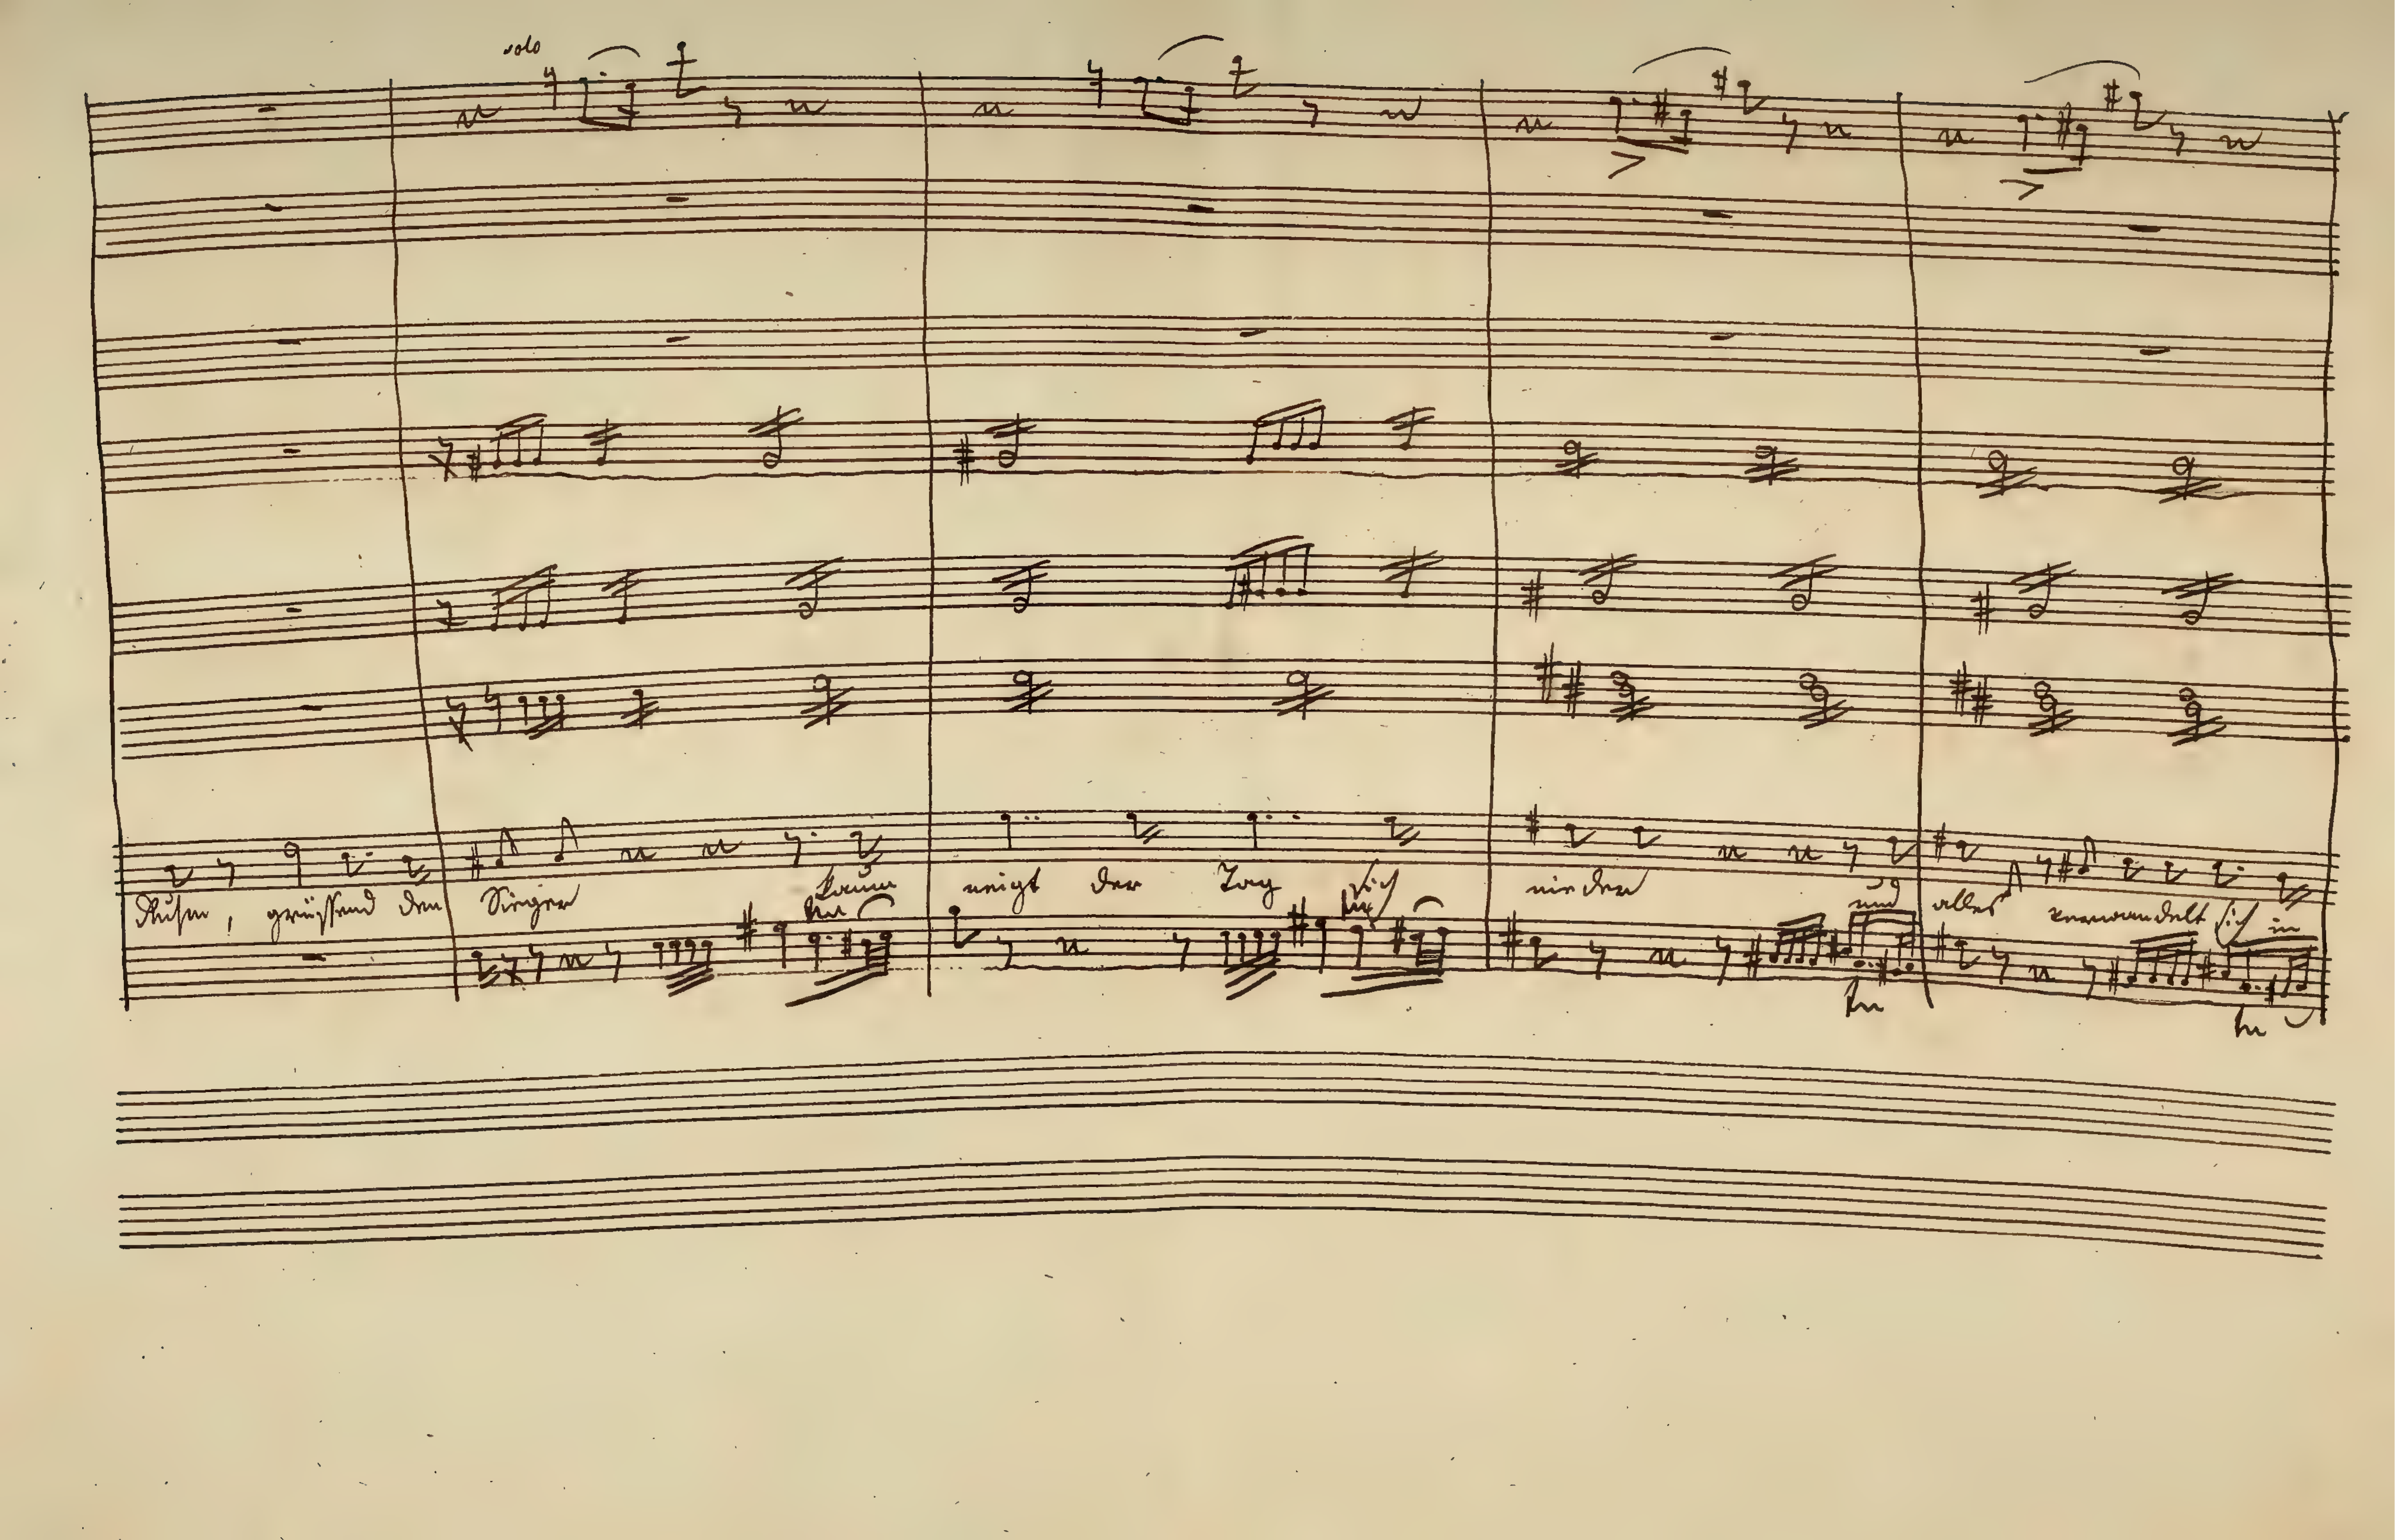 solo
Ruhm, grüssend den Sieger kaum neigt der Tag sich nieder und alles verwandelt sich in
tr tr
tr tr